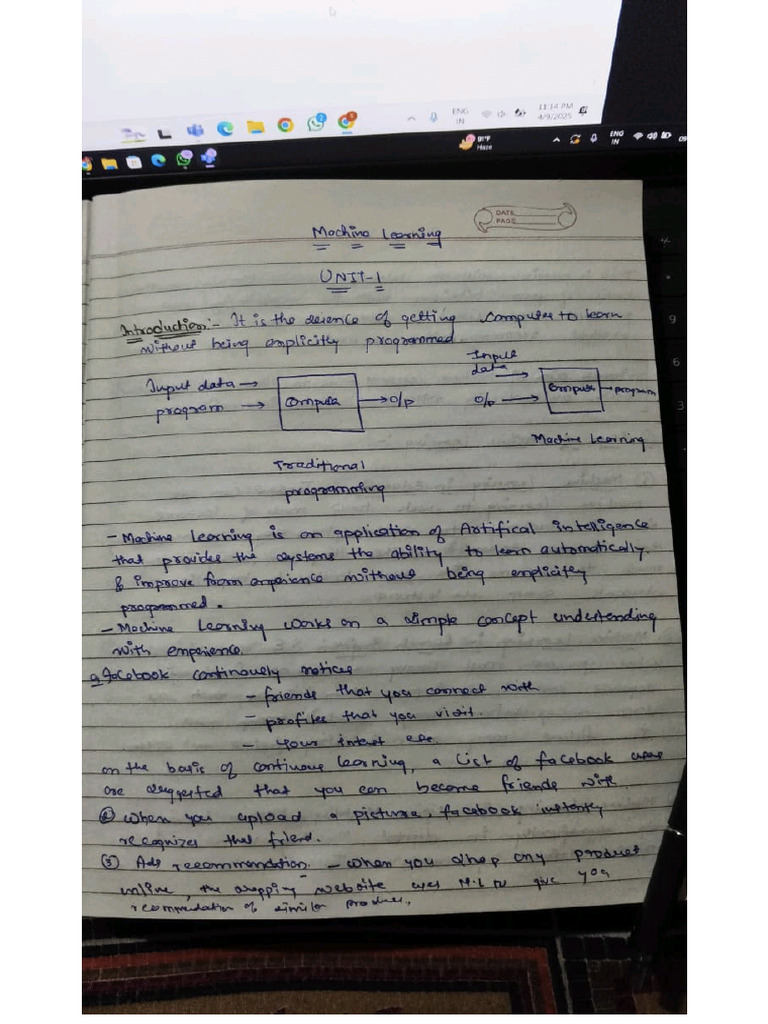 ENG
IN
11:14 PM
4/9/2025
91°F
Haze
ENG
IN
DATE
PAGE
Machine Learning
UNIT-1
Introduction:- It is the science of getting computer to learn
without being explicitly programmed
Input data →
program →
computer
→ o/p
Traditional
programming
Input
data →
o/p →
computer
→ program
Machine Learning
- Machine Learning is an application of Artifical intelligence
that provides the systems the ability to learn automatically
& improve from experience without being explicitly
programmed.
- Machine Learning works on a simple concept understending
with experience.
Facebook continously notices
- friends that you connect with
- profiles that you visit.
- your interest etc.
on the basis of continous learning, a list of facebook users
are suggested that you can become friends with.
② When you upload a picture, facebook instantly
recognizes that friend.
③ Ads recommendation - when you shop any product
online, the shopping website uses M.L to give you
recommendation of similar product.